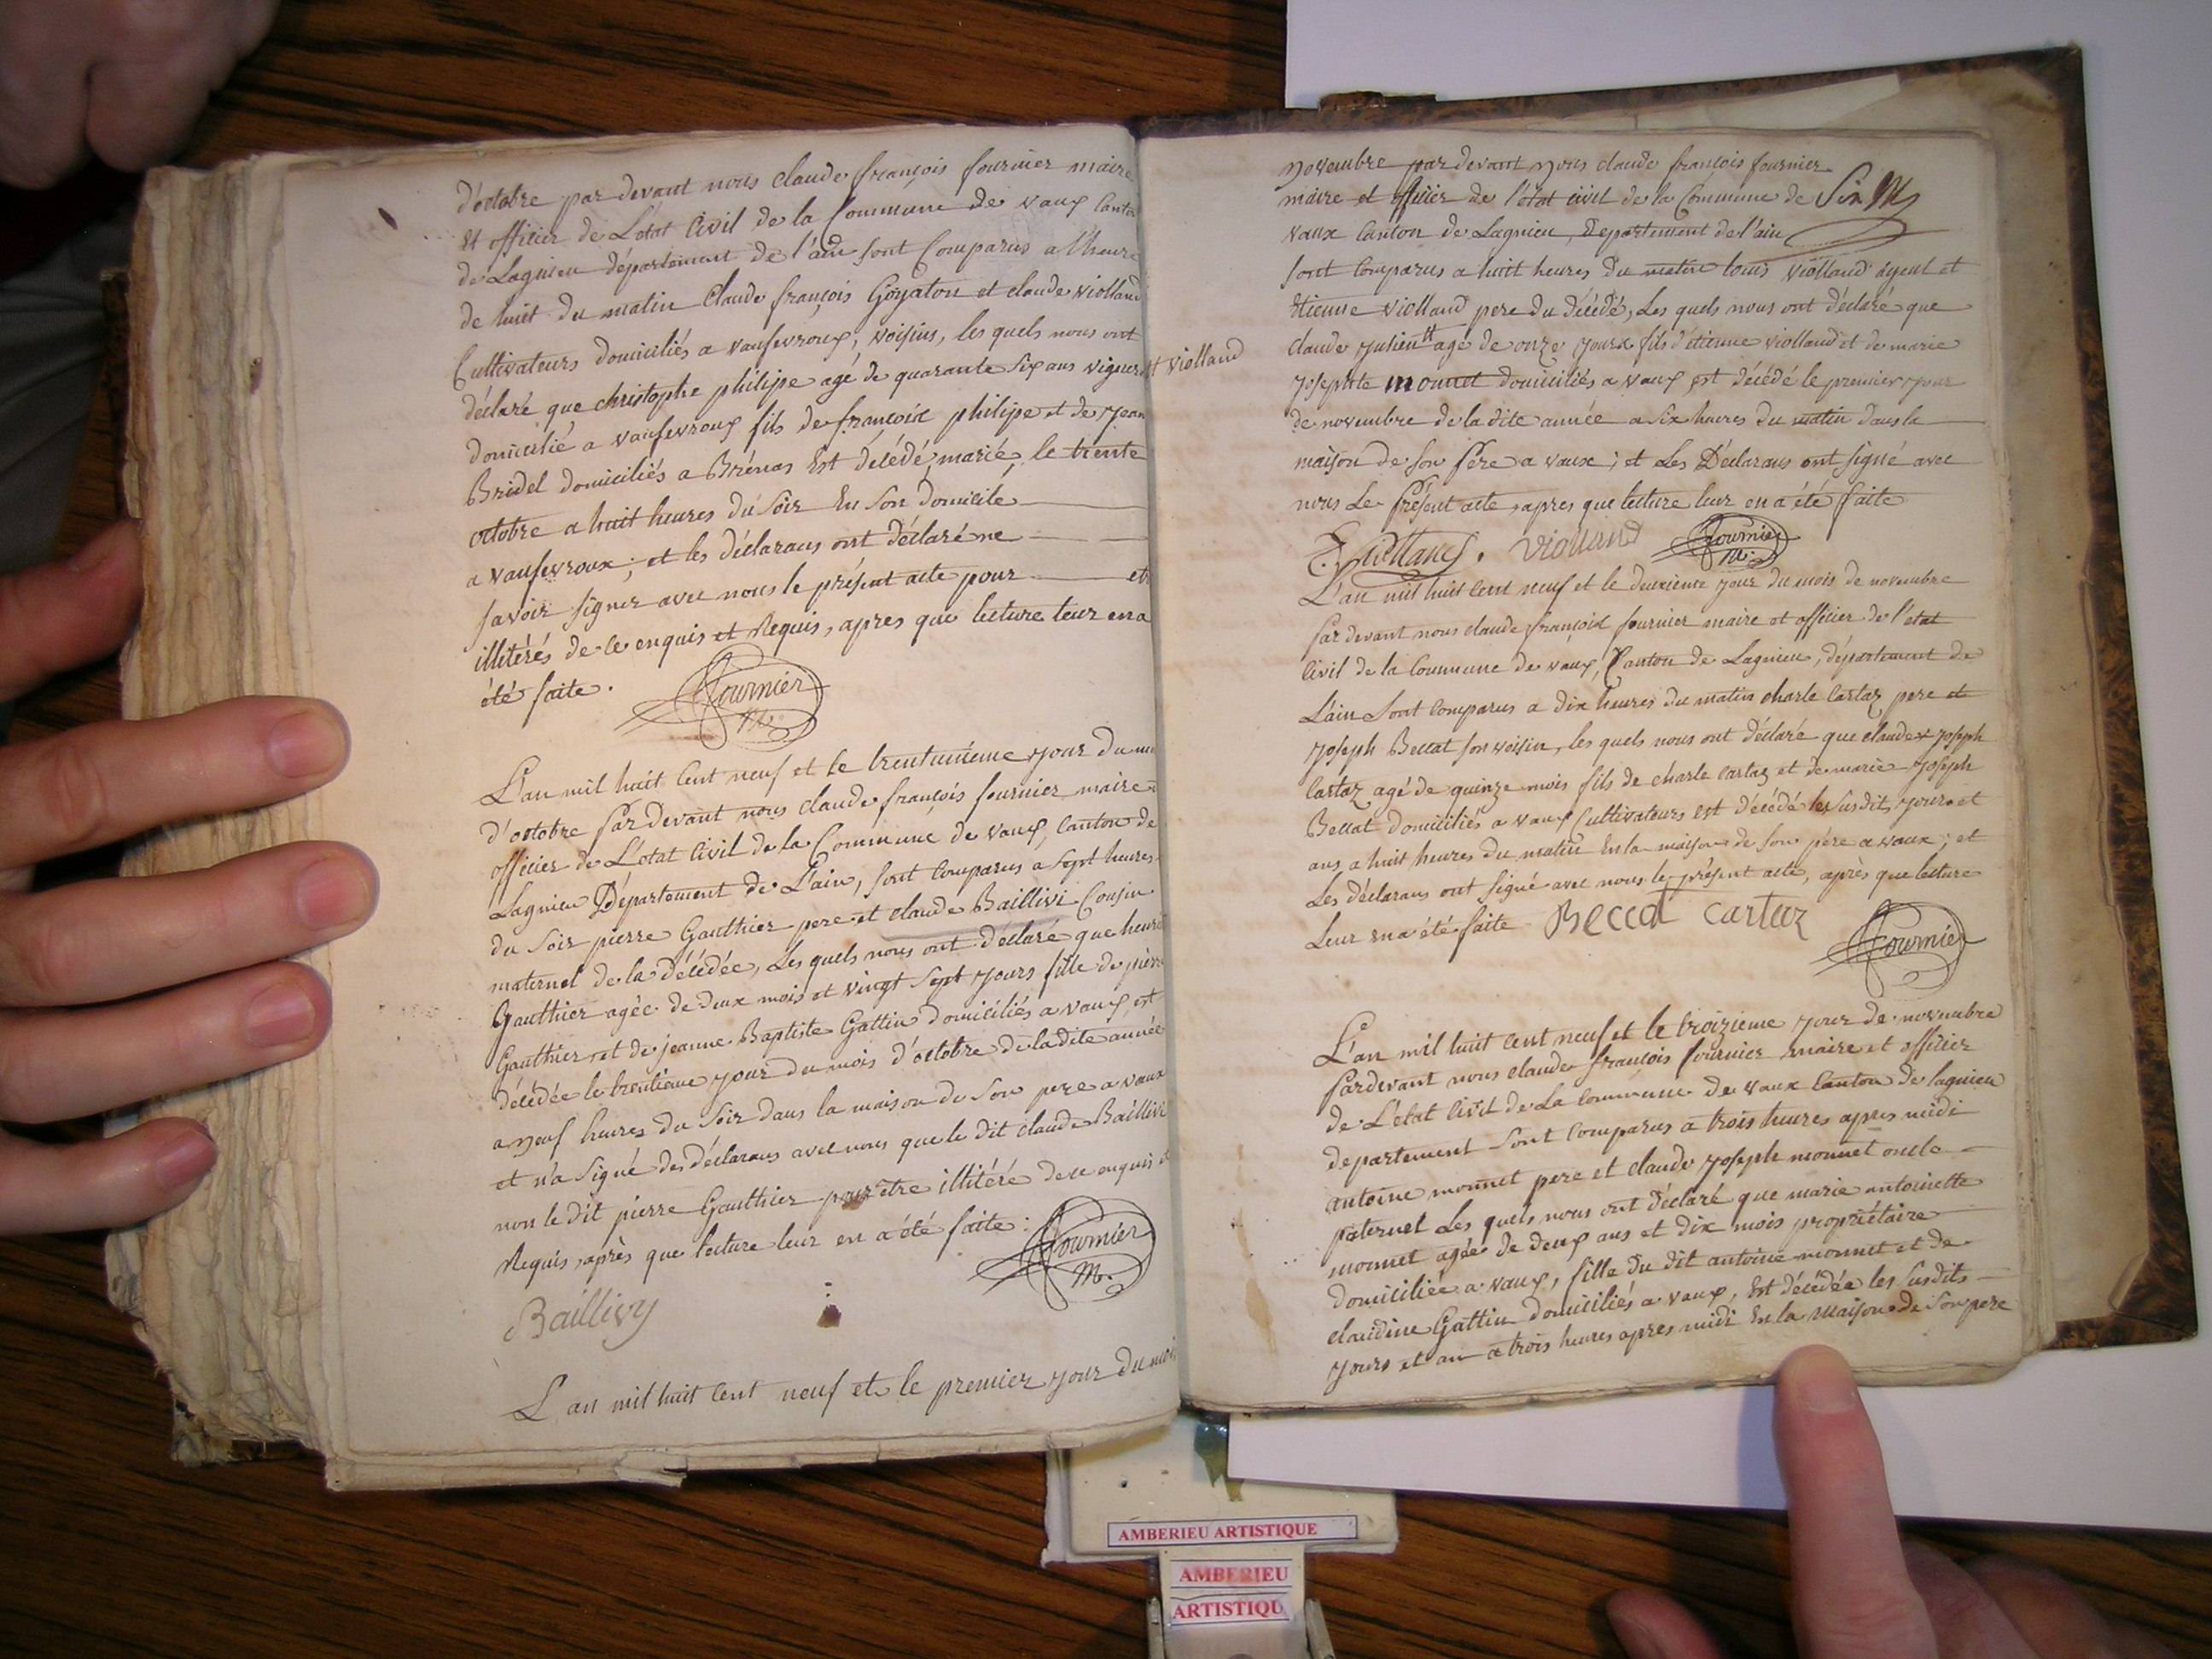 d'octobre par devant nous claude françois fournier maire
et officier de L'état Civil de la Commune de vaux Canton
de Lagnieu département de l'ain sont Comparus a l'heure
de huit du matin Claude françois Goyaton et claude violland
Cultivateurs domiciliés a vaufevroux, voisins, les quels nous ont
déclaré que christophe philipe agé de quarante six ans vigneron
domicilié a vaufevroux fils de françois philipe et de jean
Bridel domiciliés a Brénas Est décédé, marié, le trente
octobre a huit heures du soir En son domicile
a vaufevroux; et les déclarans ont déclaré ne
savoir signer avec nous le présent acte pour etre
illitérés de ce enquis et Requis, apres que lecture leur en a
été faite. Fournier
m.
L'an mil huit Cent neuf et le trentunième jour du
d'octobre par devant nous claude françois fournier maire
officier de L'état Civil de la Commune de vaux, Canton de
Lagnieu Département de L'ain, sont Comparus a sept heures
du soir pierre Gauthier pere et claude Baillivi Cousin
maternel de la décédée, Les quels nous ont déclaré que
Gauthier agée de deux mois et vingt sept jours fille de pierre
Gauthier et de jeanne Baptiste Gattin domiciliés a vaux, est
décédée le trentieme jour du mois d'octobre de la dite année
a neuf heures du soir dans la maison de son pere a vaux
et n'a signé des déclarans avec nous que le dit claude Baillivi
non le dit pierre Gauthier pour être illitéré de ce enquis et
Requis, après que lecture leur en a été faite: Fournier
m.
Baillivy
L'an mil huit Cent neuf et le premier jour du mois
novembre par devant nous claude françois fournier
maire et officier de l'état civil de la Commune de
vaux Canton de Lagnieu, Departement de l'ain
sont Comparus a huit heures du matin louis violland ayeul et
étienne violland pere du décédé, Les quels nous ont déclaré que
# violland
claude julien # agé de onze jours fils d'étienne violland et de marie
josephte monnet domiciliés a vaux est décédé le premier jour
de novembre de la dite année a six heures du matin dans la
maison de son père a vaux; et Les Déclarans ont signé avec
nous Le présent acte, apres que lecture leur en a été faite
violland. violland Fournier
m.
L'an mil huit Cent neuf et le deuxieme jour du mois de novembre
par devant nous claude françois fournier maire et officier de l'etat
Civil de la Commune de vaux, Canton de Lagnieu, département de
L'ain sont Comparus a dix heures du matin charle Cartaz pere et
joseph Beccat son voisin, les quels nous ont déclaré que claude joseph
Cartaz agé de quinze mois fils de charle Cartaz et de marie joseph
Beccat domiciliés a vaux Cultivateurs est décédé les susdits jour et
ans a huit heures du matin En la maison de son père a vaux; et
Les déclarans ont signé avec nous le présent acte, après que lecture
Leur en a été faite Beccat Cartaz
Fournier
L'an mil huit Cent neuf et le troizieme jour de novembre
Pardevant nous claude françois fournier maire et officier
de L'état Civil de La Commune de vaux Canton de lagnieu
departement sont Comparus a trois heures apres midi
antoine monnet pere et claude joseph monnet oncle
paternel Les quels nous ont déclaré que marie antoinette
monnet agée de deux ans et dix mois propriétaire
domiciliée a vaux, fille du dit antoine monnet et de
claudine Gattin domiciliés a vaux, Est décédée les susdits
jours et an a trois heures apres midi En la maison de son pere
AMBERIEU ARTISTIQUE
AMBERIEU
ARTISTIQU